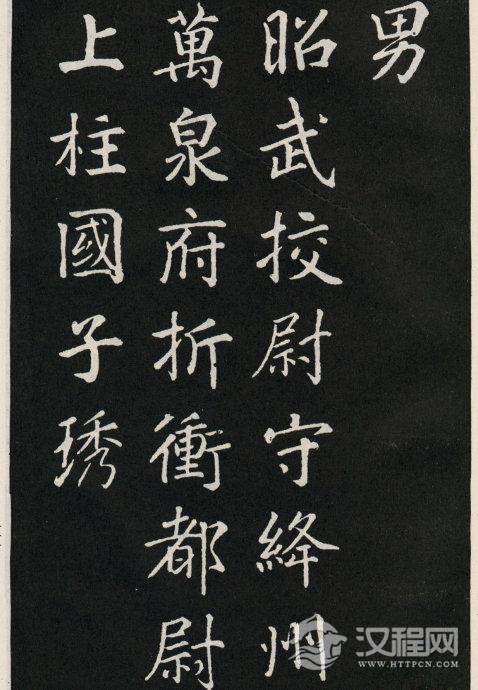 男
昭武挍尉守絳州
萬泉府折衝都尉
上柱國子琇
汉程网
WWW.HTTPCN.COM